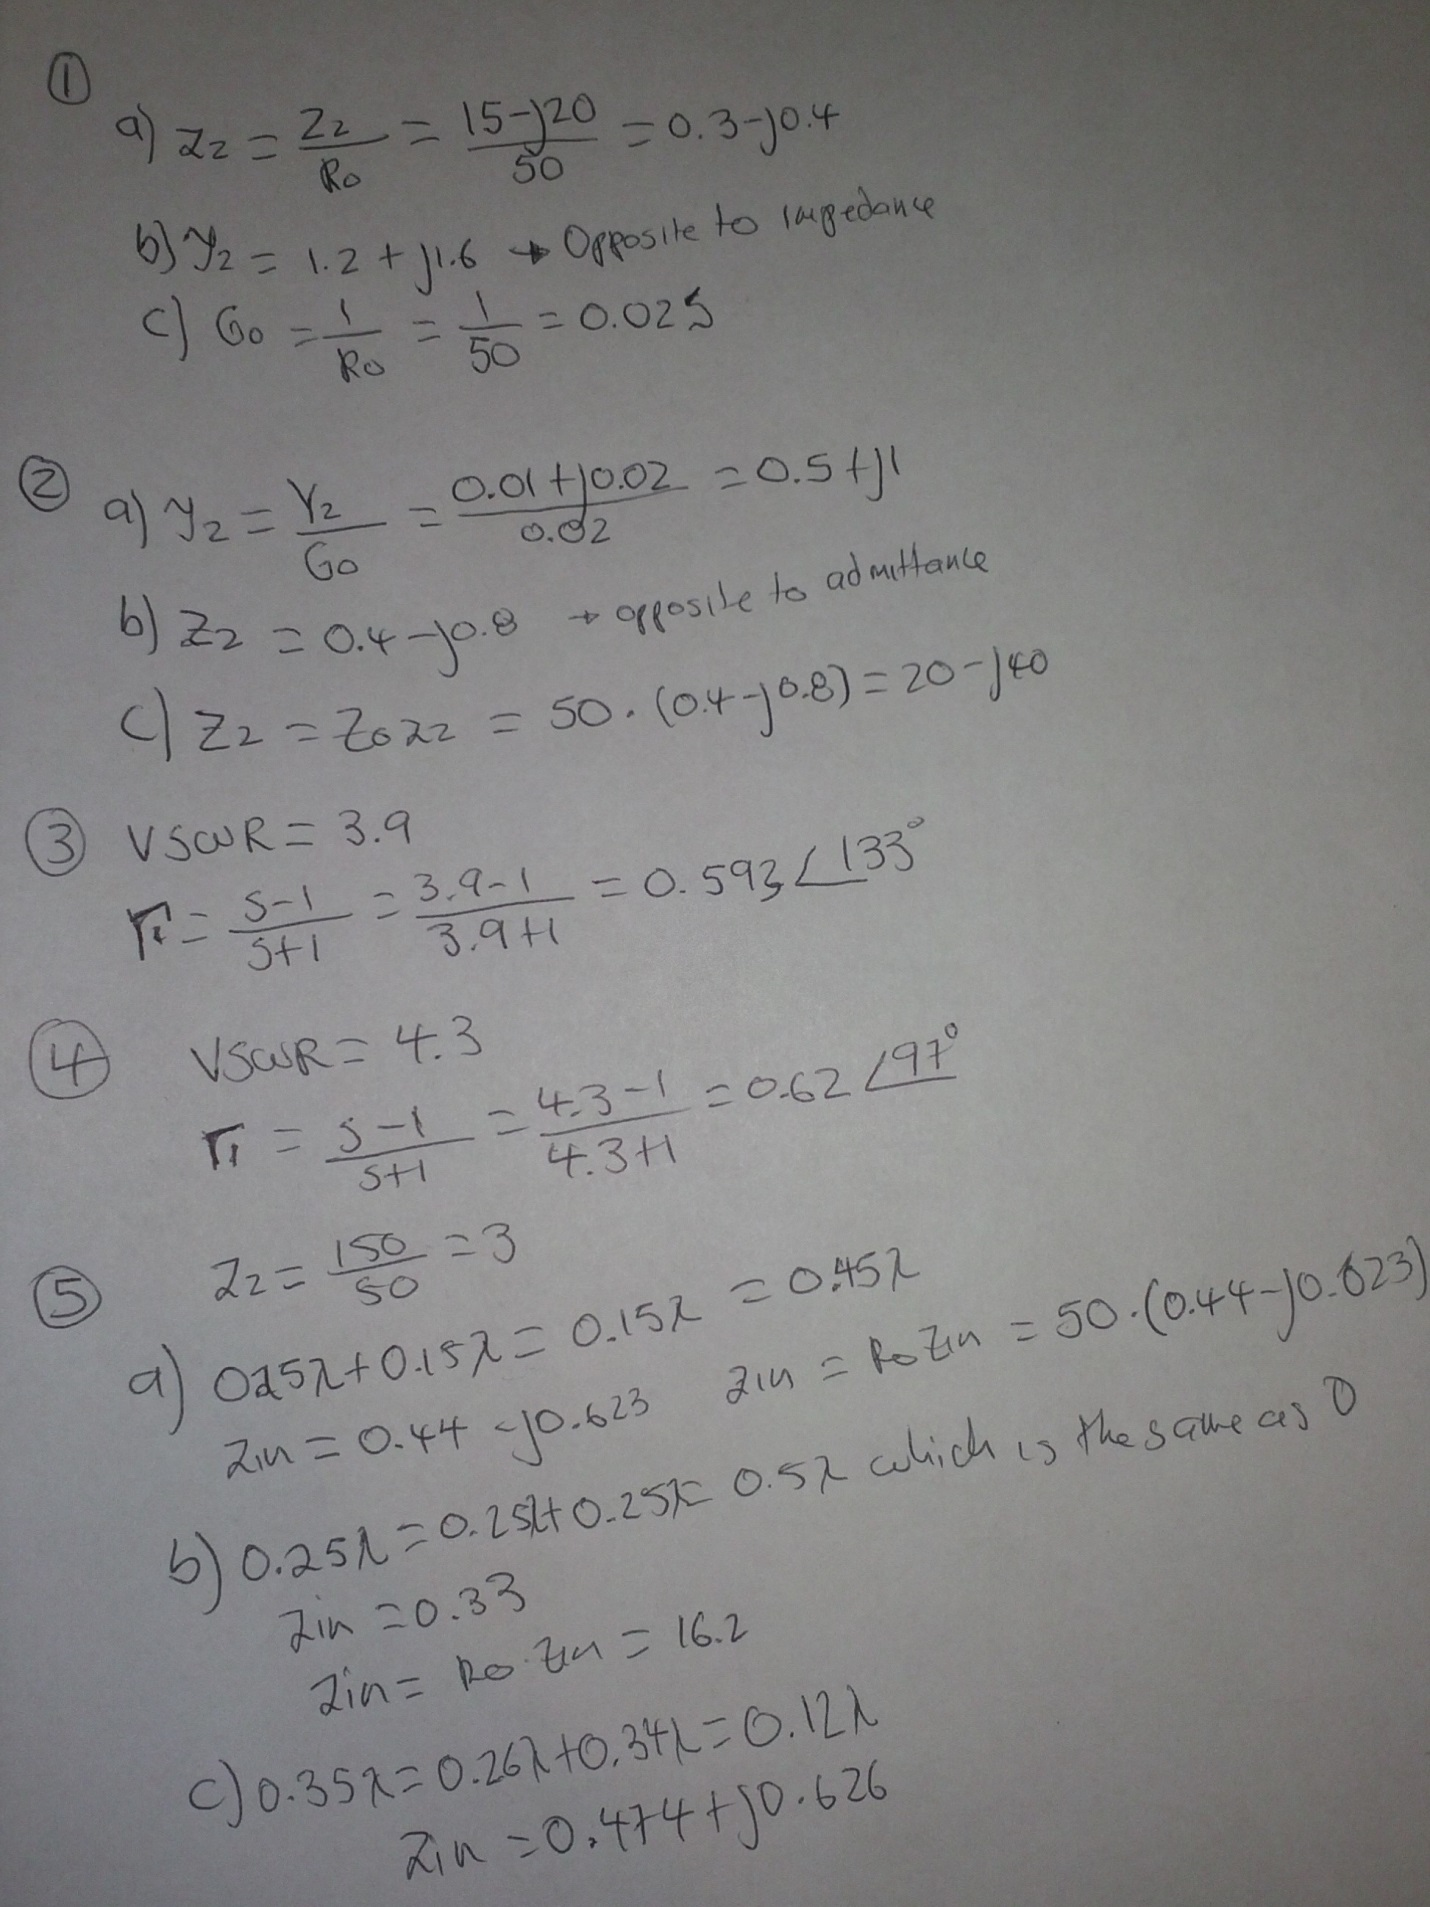 ①
a) z2 = Z2/R0 = 15-j20/50 = 0.3-j0.4
b) y2 = 1.2+j1.6 → Opposite to impedance
c) G0 = 1/R0 = 1/50 = 0.02S
②
a) y2 = Y2/G0 = 0.01+j0.02/0.02 = 0.5+j1
b) z2 = 0.4-j0.8 → opposite to admittance
c) Z2 = Z0z2 = 50.(0.4-j0.8) = 20-j40
③ VSWR = 3.9
Γ = S-1/S+1 = 3.9-1/3.9+1 = 0.593∠133°
④ VSWR = 4.3
Γ = S-1/S+1 = 4.3-1/4.3+1 = 0.62∠97°
⑤ Z2 = 150/50 = 3
a) 0.25λ+0.15λ = 0.15λ = 0.45λ
Zin = 0.44-j0.623 Zin = R0Zin = 50.(0.44-j0.623)
b) 0.25λ = 0.25λ+0.25λ = 0.5λ which is the same as 0
Zin = 0.33
Zin = R0.Zin = 16.2
c) 0.35λ = 0.26λ+0.34λ = 0.12λ
Zin = 0.474+j0.626